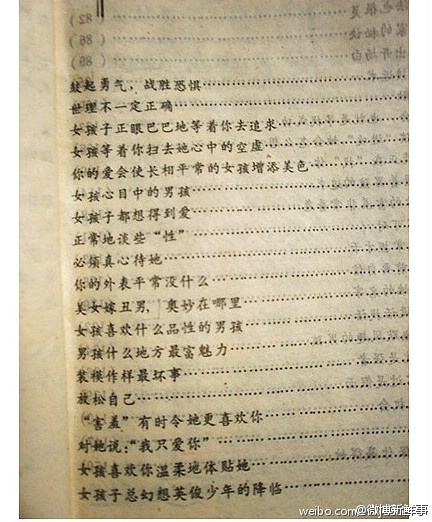 鼓起勇气，战胜恐惧……………
世理不一定正确……………
女孩子正眼巴巴地等着你去追求……………
女孩等着你扫去她心中的空虚……………
你的爱会使长相平常的女孩增添美色……………
女孩心目中的男孩……………
女孩子都想得到爱……………
正常地谈些“性”……………
必须真心待她……………
你的外表平常没什么……………
美女嫁丑男，奥妙在哪里……………
女孩喜欢什么品性的男孩……………
男孩什么地方最富魅力……………
装模作样最坏事……………
放松自己……………
“害羞”有时令她更喜欢你……………
对她说：“我只爱你”……………
女孩喜欢你温柔地体贴她……………
女孩子总幻想英俊少年的降临……………
weibo.com/@微博新鲜事